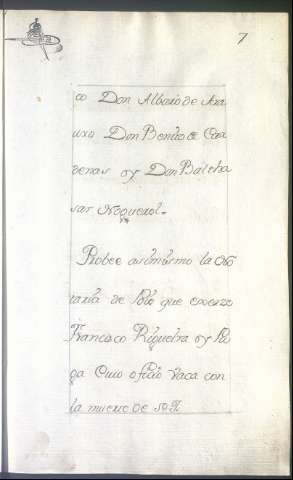 7
co Don Albaro de Ara
uxo Don Benito de Car
denas y Don Baltha
sar Noguerol.
Probee asimismo la No
taria de Poio que exerze
Francisco Rigueira y Po
ga Cuio oficio Vaca con
la muerte de